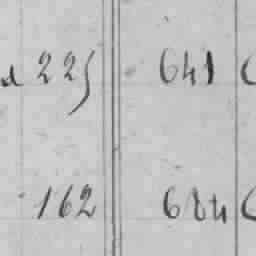 d 225 641 C
162 684 C